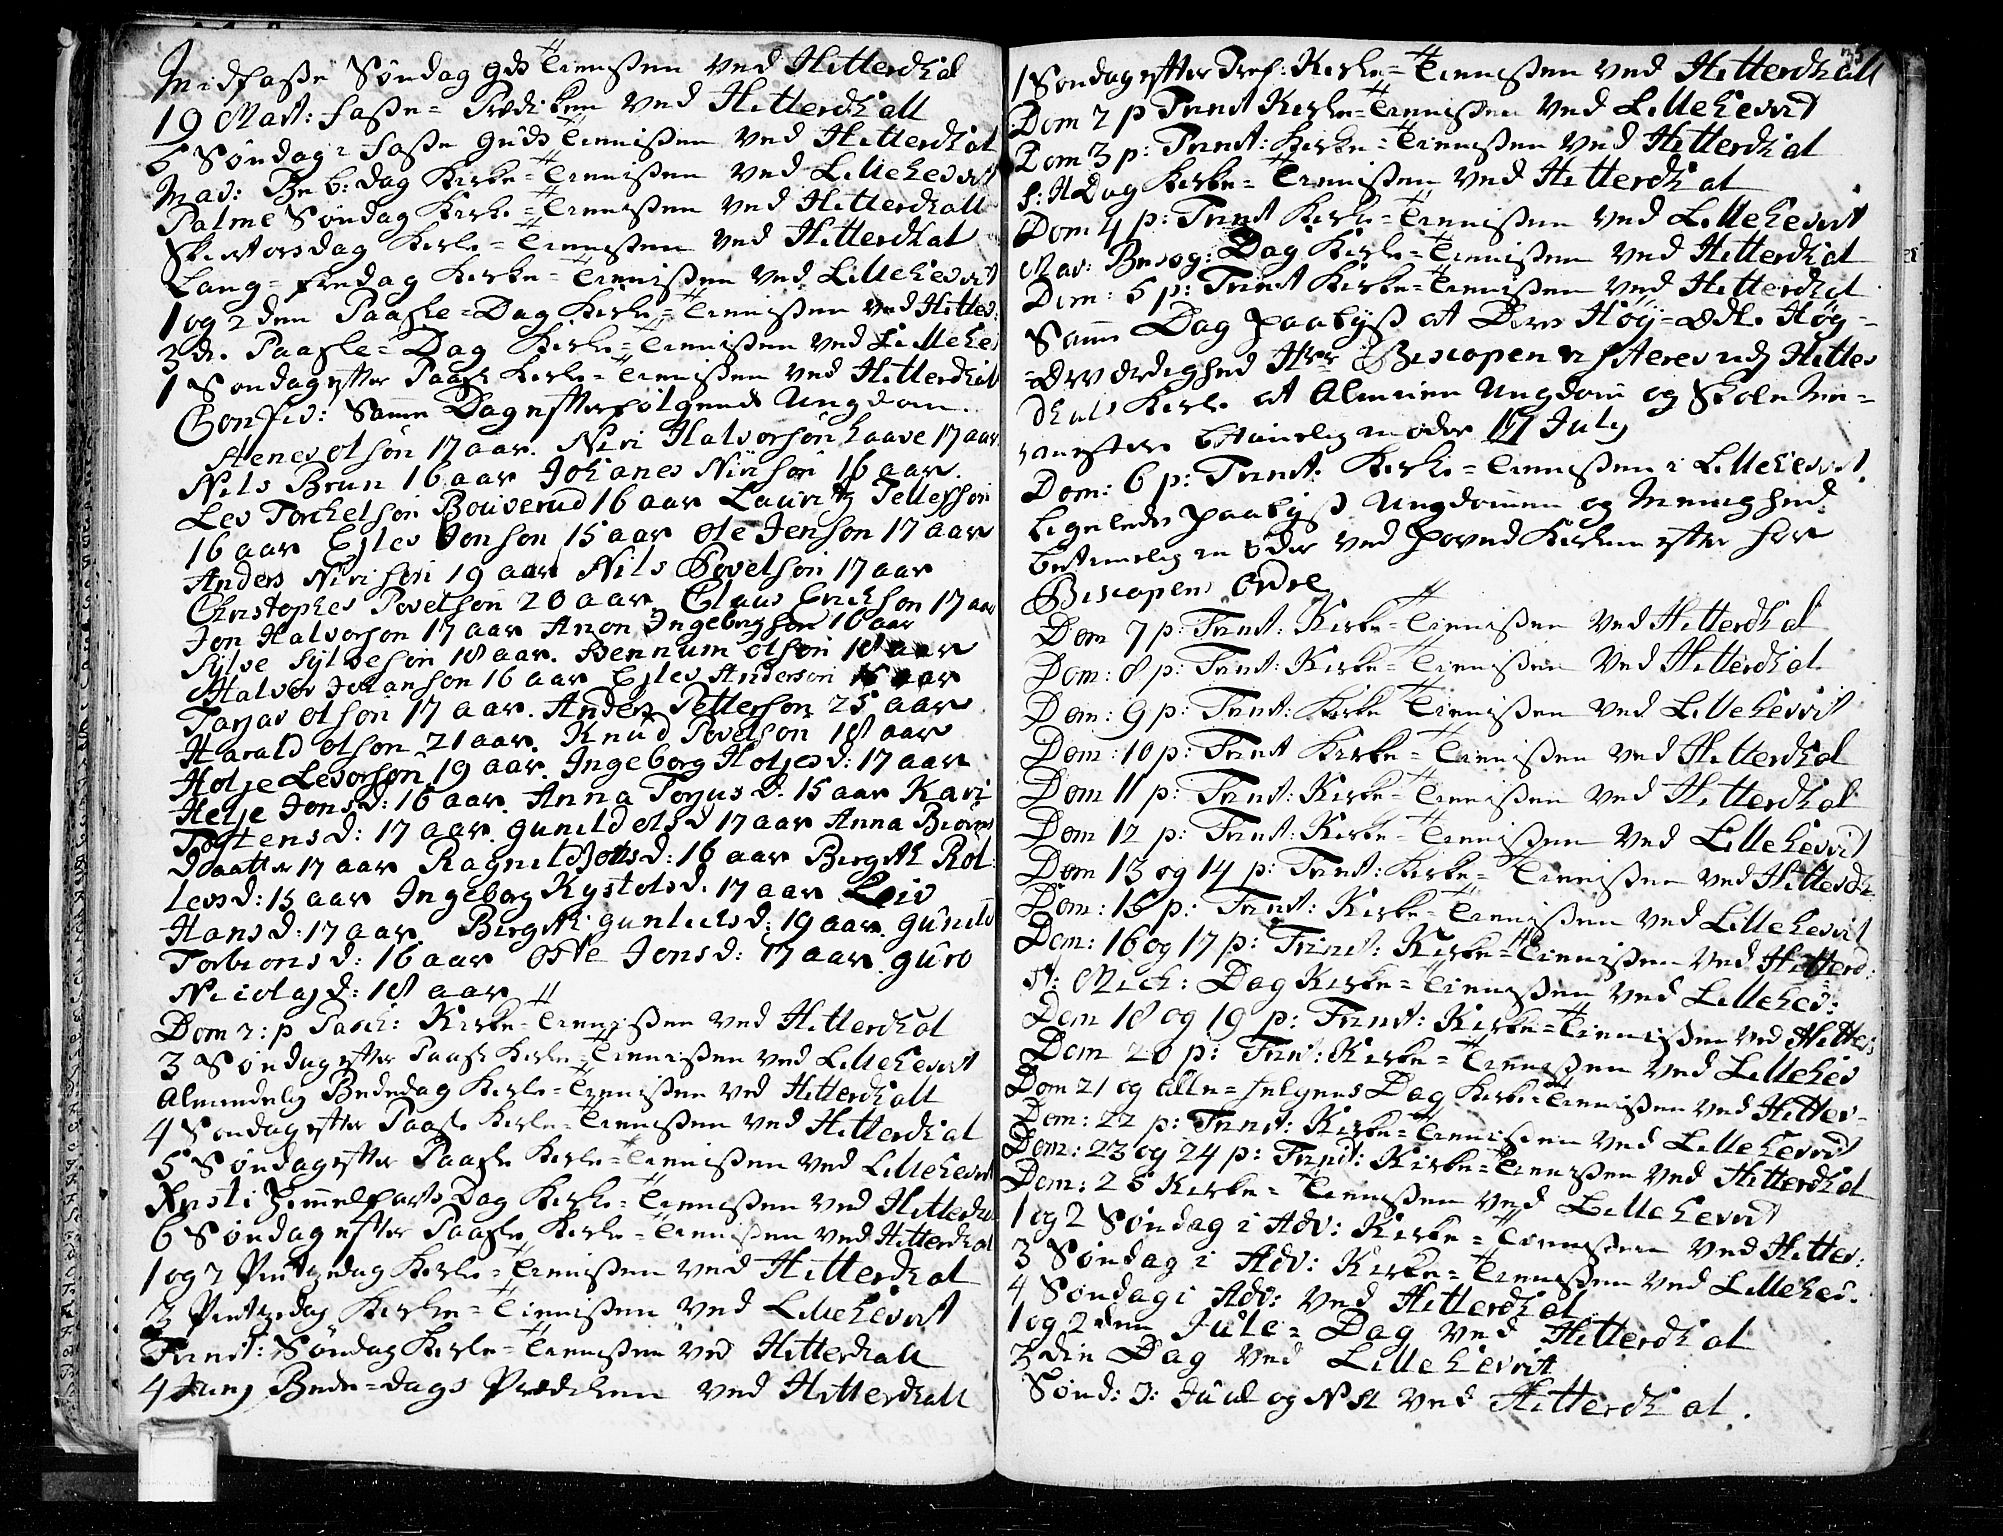 Midfaste Søndag gds Tienisten ved Hitterdhal
19 Mart: faste= Prædiken ved Hitterdhall
5 Søndag i faste guds Tienisten ved Hitterdhal
Mar: Beb: dag Kirke=Tienisten ved Lillehervet
Palme Søndag Kirke=Tienisten ved Hitterdhall
Skiertorsdag Kirke=Tienisten ved Hitterdhal
Lang=fredag Kirke=Tienisten ved Lillehervet
1 og 2den Paaske=Dag Kirke=Tienisten ved Hitter:
3de Paaske=Dag Kirke=Tienisten ved Lilleher
1 Søndag efter Paask Kirke=Tienisten ved Hitterdhal
Confir: Samme Dag efterfølgende Ungdom.
Stener olsøn 17 aar. Niri Halvorsøn haave 17 aar
Nils Brun 16 aar Johanes Nirisøn 16 aar.
Lev Torchelsøn Bouverud 16 aar Lauritz Tellefson
16 aar Ejlev Jonson 15 aar ole Jenson 17 aar
Anders Nirisøn 19 aar Nils Povelsøn 17 aar
Christopher Povelsøn 20 aar Claus Erickson 17 aar
Jon Halvorsøn 17 aar Anon Ingebrigtson 16 aar
Sylve Sylvesøn 18 aar. Bennum olsøn 18 aar
Halvor Johanson 16 aar Ejlev Anderson aar
Tarjar olsøn 17 aar. Anders Pettersøn 25 aar
Harald olsøn 21 aar. Knud Povelsøn 18 aar
Holje Levorsøn 19 aar. Ingeborg Holjesd: 17 aar
Helje Jonsd: 16 aar. Anna Torjusd: 15 aar Kari
Tostensd: 17 aar. gunild olsd 17 aar Anna Biørns
daatter 17 aar Ragnild Jonsd: 16 aar Birgith Rol
levsd: 15 aar Ingeborg Kystolsd. 17 aar Liv
Hansd: 17 aar. Birgith gunleiksd: 19 aar. gunild
Torbionsd: 16 aar Jonsd: 17 aar. guro
Nicolajd: 18 aar
Dom 2: p Pasch: Kirke=Tienisten ved Hitterdhal
3 Søndag efter Paask Kirke=Tienisten ved Lillehervet
Almindelig Bededag Kirke=Tienisten ved Hitterdhall
4 Søndag efter Paask Kirke=Tienisten ved Hitterdhal
5 Søndag efter Paaske Kirke=Tienisten ved Lillehervet
Xristi Himmelfarts Dag Kirke=Tienisten ved Hitterdal
6 Søndag efter Paaske Kirke=Tienisten ved Hitterdhal
1 og 2 Pintzedag Kirke=Tienisten ved Hitterdhal
3 Pintzedag Kirke=Tienisten ved Lillehervet
Trinit: Søndag Kirke=Tienisten ved Hitterdhall
4 Junj Bede=dags Prædiken ved Hitterdhall
35
1 Søndag efter Tref: Kirke=Tienisten ved Hitterdhall
Dom 2 p Trinit Kirke=Tienisten ved Lillehervet
Dom 3 p: Trinit: Kirke=Tienisten ved Hitterdhal
S: H Dag Kirke=Tienisten ved Hitterdhal
Dom 4 p: Trinit Kirke=Tienisten ved Lillehervet
Mar: Besøg: Dag Kirke=Tienisten ved Hitterdhal
Dom: 5 p: Trinit Kirke=Tienisten ved Hitterdhal
Samme Dag paabyst at Deres Høy=ædle Høy-
=ærværdighed Hr Biscopen visiterer udj Hitter
dhals Kirke at Almuen Ungdom og Skole
betimelig møder 17 July
Dom: 6 p: Trinit: Kirke=Tienisten i Lillehervet.
ligeledes paabyst Ungdommen og Meenighed:
betimelig møder ved hoved Kirken efter Herr
Biscopens Ordre
Dom 7 p: Trinit: Kirke=Tienisten ved Hitterdhal
Dom: 8 p: Trinit: Kirke=Tienisten ved Hitterdhal.
Dom: 9 p: Trinit: Kirke Tienisten ved Lillehervet
Dom: 10 p: Trinit Kirke=Tienisten ved Hitterdhal
Dom 11 p: Trinit: Kirke=Tienisten ved Hitterdhal
Dom 12 p: Trinit: Kirke=Tienisten ved Lillehervet
Dom 13 og 14 p: Trinit: Kirke=Tienisten ved Hitterdh
Dom: 15 p: Trinit: Kirke=Tienisten ved Lillehervet
Dom: 16 og 17 p: Trinit: Kirke=Tienisten ved Hitterd:
St: Mich: Dag Kirke=Tienisten ved Lilleher:
Dom 18 og 19 p: Trinit: Kirke=Tienisten ved Hitter
Dom 20 p: Trinit: Kirke=Tienisten ved Lilleher
Dom 21 og Alle=Helgens Dag Kirke=Tienisten ved Hitter-
Dom: 22 p: Trinit: Kirke=Tienisten ved Lillehervet
Dom: 23 og 24 p: Trinit: Kirke=Tienisten ved Hitterdhal
Dom: 25 Kirke=Tienisten ved Lillehervet
1 og 2 Søndag i Adv: Kirke=Tienisten ved Hitter:
3 Søndag i Adv: Kirke=Tienisten ved Lilleher.
4 Søndag i Adv: ved Hitterdhal
1 og 2den Jule=Dag ved Hitterdhal
3die Dag ved Lillehervet
Sønd: I: Juul og NA ved Hitterdhal.